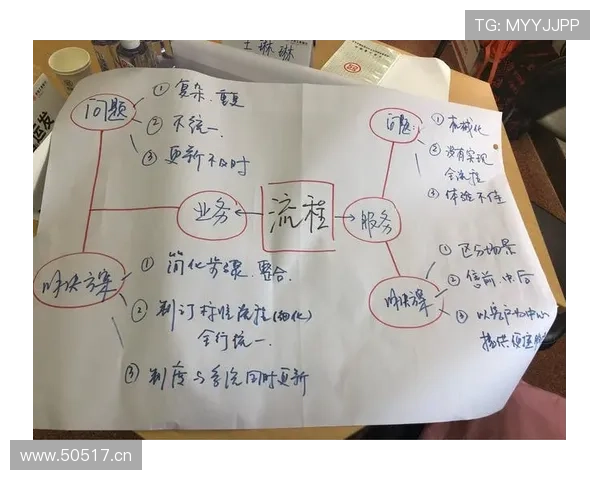 TG: MYYJJPP
王琳琳
问题
① 复杂、重复
② 不统一
③ 更新不及时
业务
流程
服务
问题:
① 机械化
② 没有实现
全流程
③ 体验不佳
解决方案
① 简化步骤、整合
② 制订标准流程(细化)
全行统一
③ 制度与系统同时更新
解决方案
① 区分场景
② 售前、中、后
③ 以客户为中心
提供便捷服
www.50517.cn